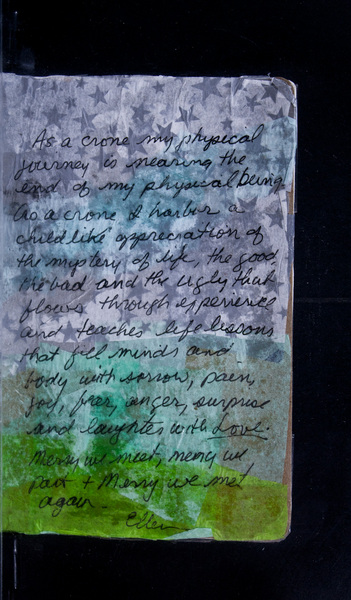 As a crone my physical
journey is nearing the
end of my physical being.
As a crone I harbor a
childlike appreciation of
the mystery of life, the good,
the bad and the ugly that
flows through experience
and teaches life lessons
that fill minds and
body with sorrow, pain,
joy, fear, anger, surprise
and laughter with Love.
Merry we meet, merry we
part + Merry we met
again.
Ellen